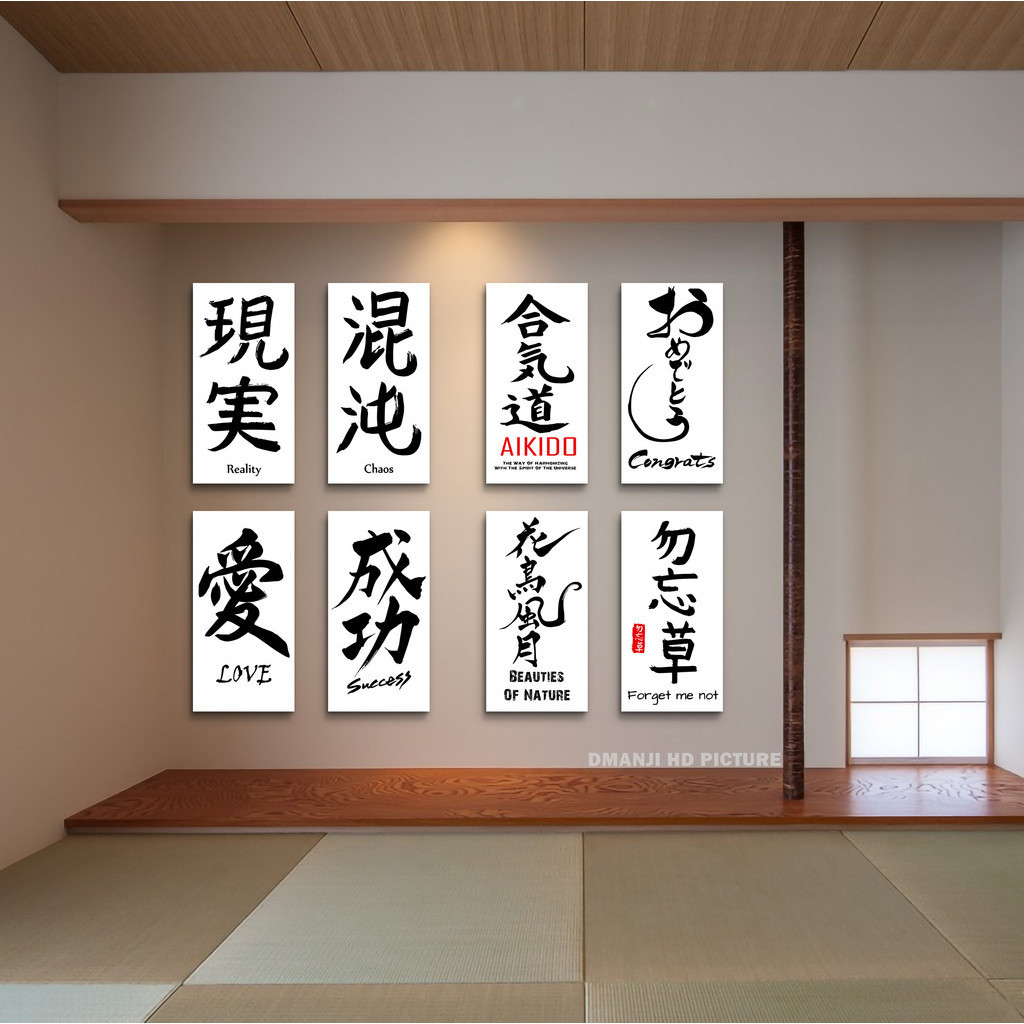 現
実
Reality
混
沌
Chaos
合
気
道
AIKIDO
THE WAY OF HARMONIZING
WITH THE SPIRIT OF THE UNIVERSE
おめでとう
Congrats
愛
LOVE
成
功
Success
花
鳥
風
月
BEAUTIES
OF NATURE
勿
忘
草
勿忘草
Forget me not
DMANJI HD PICTURE